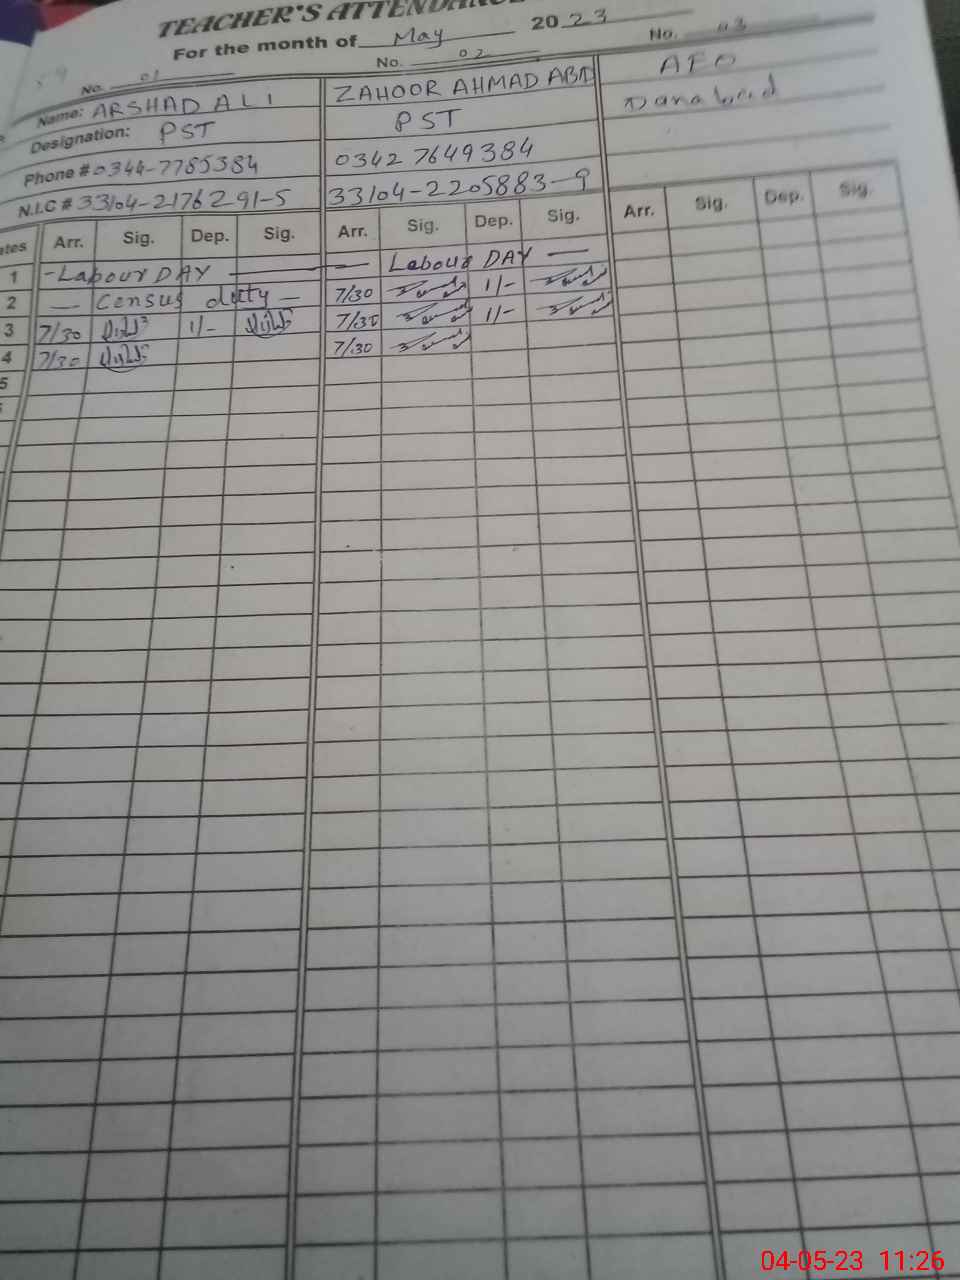 TEACHER'S ATTENDANCE
For the month of May 2023
No. 01 No. 02 No. 03
Name: ARSHAD ALI ZAHOOR AHMAD ABID AEO
Designation: PST PST
Phone # 0344-7785384 0342 7649384
N.I.C # 33104-2176291-5 33104-2205883-9
Arr. Sig. Dep. Sig. Arr. Sig. Dep. Sig. Arr. Sig. Dep. Sig.
1 - Labour DAY — Labour DAY —
2 — Census duty — 7/30 1/-
3 7/30 1/- 7/30 1/-
4 7/30 7/30
5
04-05-23 11:26